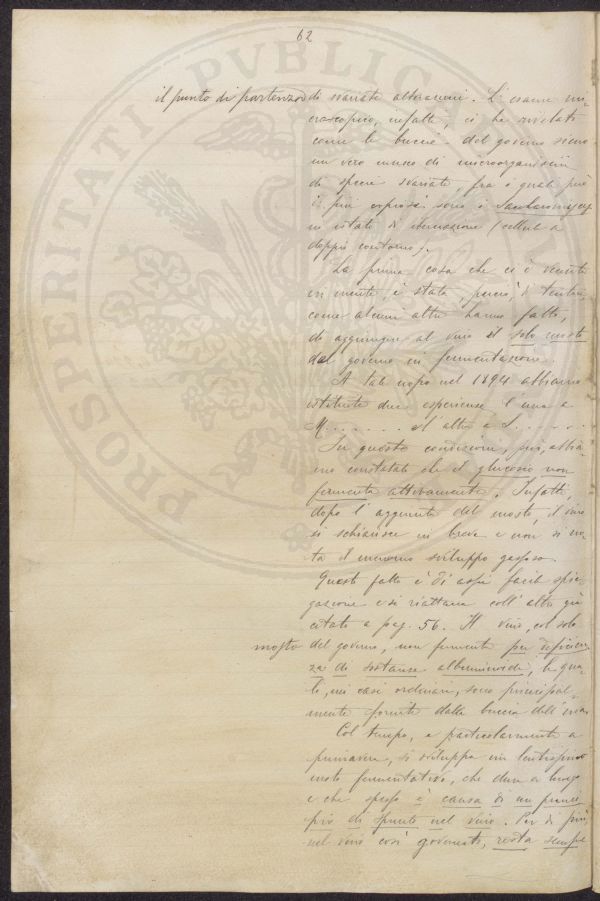 62
il punto di partenza di svariate alterazioni. L'esame mi-
croscopico, infatti ci ha rivelato
come le buccie del governo sieno
un vero museo di microorganismi
di specie svariate, fra i quali
i più copiosi sono i Saccaromyces
in istato di (cellule a
doppio contorno).
La prima cosa che ci è venuta
in mente, è stata, perciò, di tentare
come alcuni altri hanno fatto,
di aggiungere al vino il solo mosto
del governo in fermentazione.
A tale uopo nel 1894 abbiamo
istituite due esperienze l'una a
M....... e l'altra a S.......
In queste condizioni, però, abbia-
mo constatato che il glucosio non
fermenta attivamente. Infatti,
dopo l'aggiunta del mosto, il vino
si schiarisce in breve e non si no-
ta il menomo sviluppo gassoso.
Questo fatto è di assai facile spie-
gazione e si riattacca coll'altro già
citato a pag. 56. Il vino, col solo
mosto del governo, non fermenta per deficien-
za di sostanze albuminoidi, le qua-
li, nei casi ordinari, sono principal-
mente fornite dalla buccia dell'uva.
Col tempo, e particolarmente a
primavera, si sviluppa un lentissimo
moto fermentativo, che dura a lungo
e che spesso è causa di un princi-
pio di spunto nel vino. Per di più
nel vino così governato, resta sempre
PROSPERITATI PVBLICAE